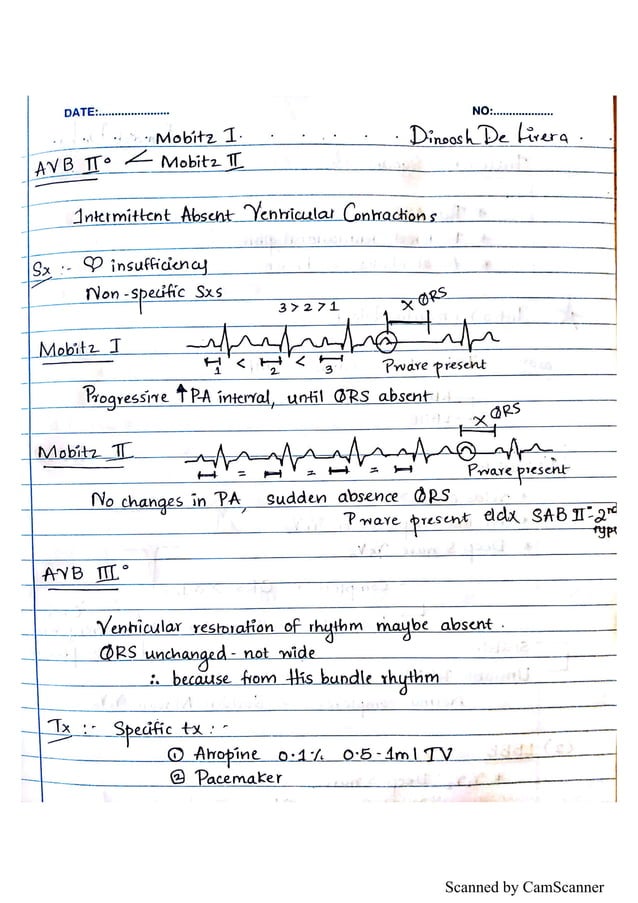 DATE:...................... NO:...................
Mobitz I. Dinoosh De Livera.
AVB II° < Mobitz II
Intermittent Absent Ventricular Contractions
Sx :- ♡ insufficiency
Non-specific Sxs
3 > 2 > 1 X QRS
Mobitz I
1 < 2 < 3 Pwave present
Progressive ↑ PQ interval, until QRS absent
X QRS
Mobitz II
= = = Pwave present
No changes in PQ, sudden absence QRS
P wave present ddx SAB II°-2nd type
AVB III°
Ventricular restoration of rhythm maybe absent.
QRS unchanged - not wide
∴ because from His bundle rhythm
Tx :- Specific tx :-
① Atropine 0.1% 0.5-1ml IV
② Pacemaker
Scanned by CamScanner